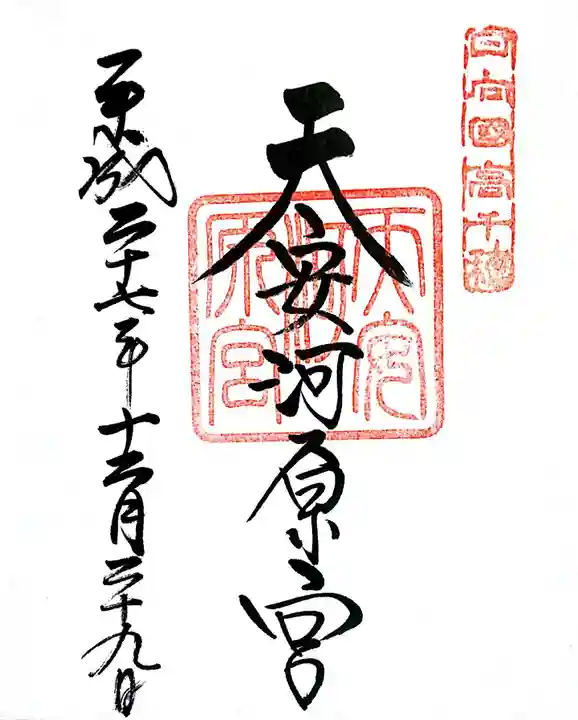 日向国高千穂
天安河原宮
天安河原宮
平成二十七年十二月二十九日